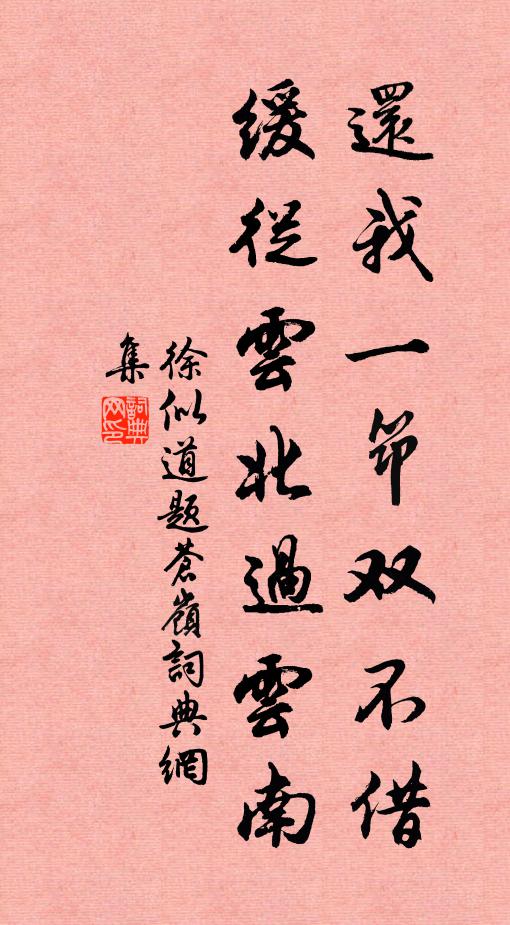 還我一笻双不借
緩從雲北過雲南
徐似道題蒼嶺詞典網
集
詞典网印